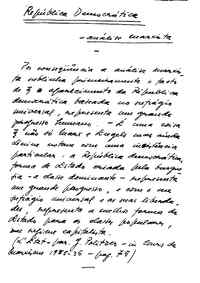 República Democrática
- análise marxista
Por consequência a análise marxis-
ta sublinha primeiramente o facto
de q o aparecimento da República
democrática baseada no sufrágio
universal, representa um grande
progresso humano. - E uma coisa
q não só Marx e Engels mas ainda
Lenine notam com uma insistência
particular: a República democrática,
forma de Estado criada pela burgue-
sia - a classe dominante - representa
um grande progresso, e com o seu
sufrágio universal e as suas liberda-
des, representa a melhor forma de
Estado para as classes populares,
em regime capitalista.
(L'État - par G. Politzer - in Cours de
marxisme 1935-36 - pag. 78)